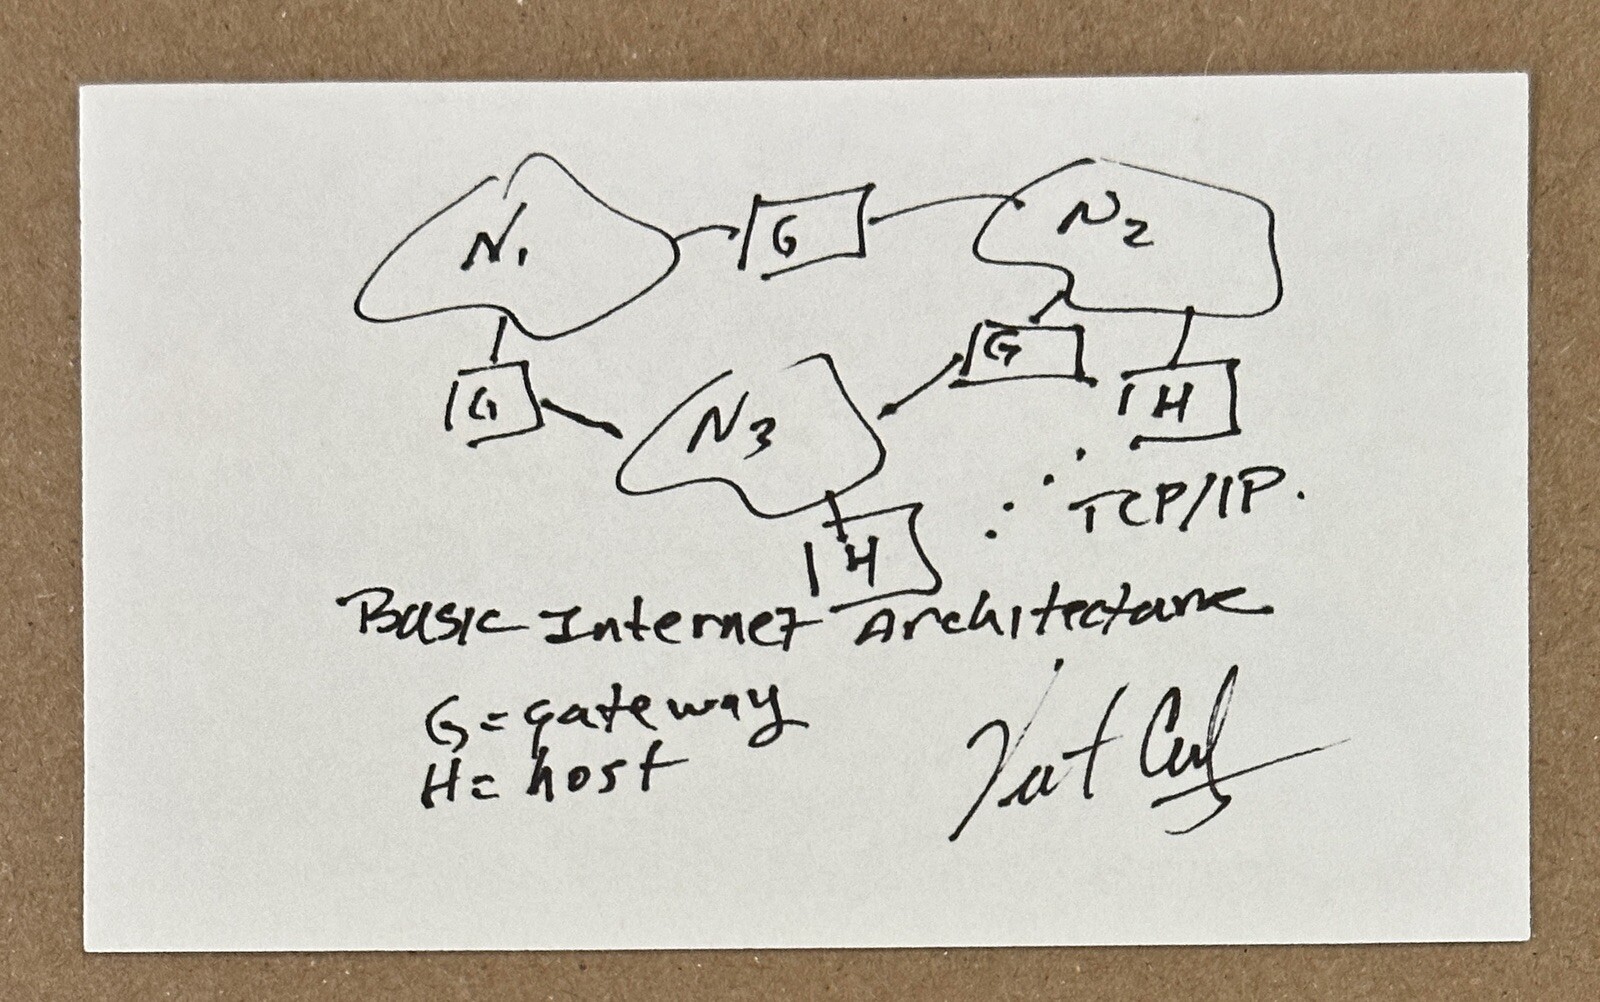 N1
G
N2
G
G
H
N3
H
∴ TCP/IP.
Basic Internet Architecture
G = gateway
H = host
Vint Cerf